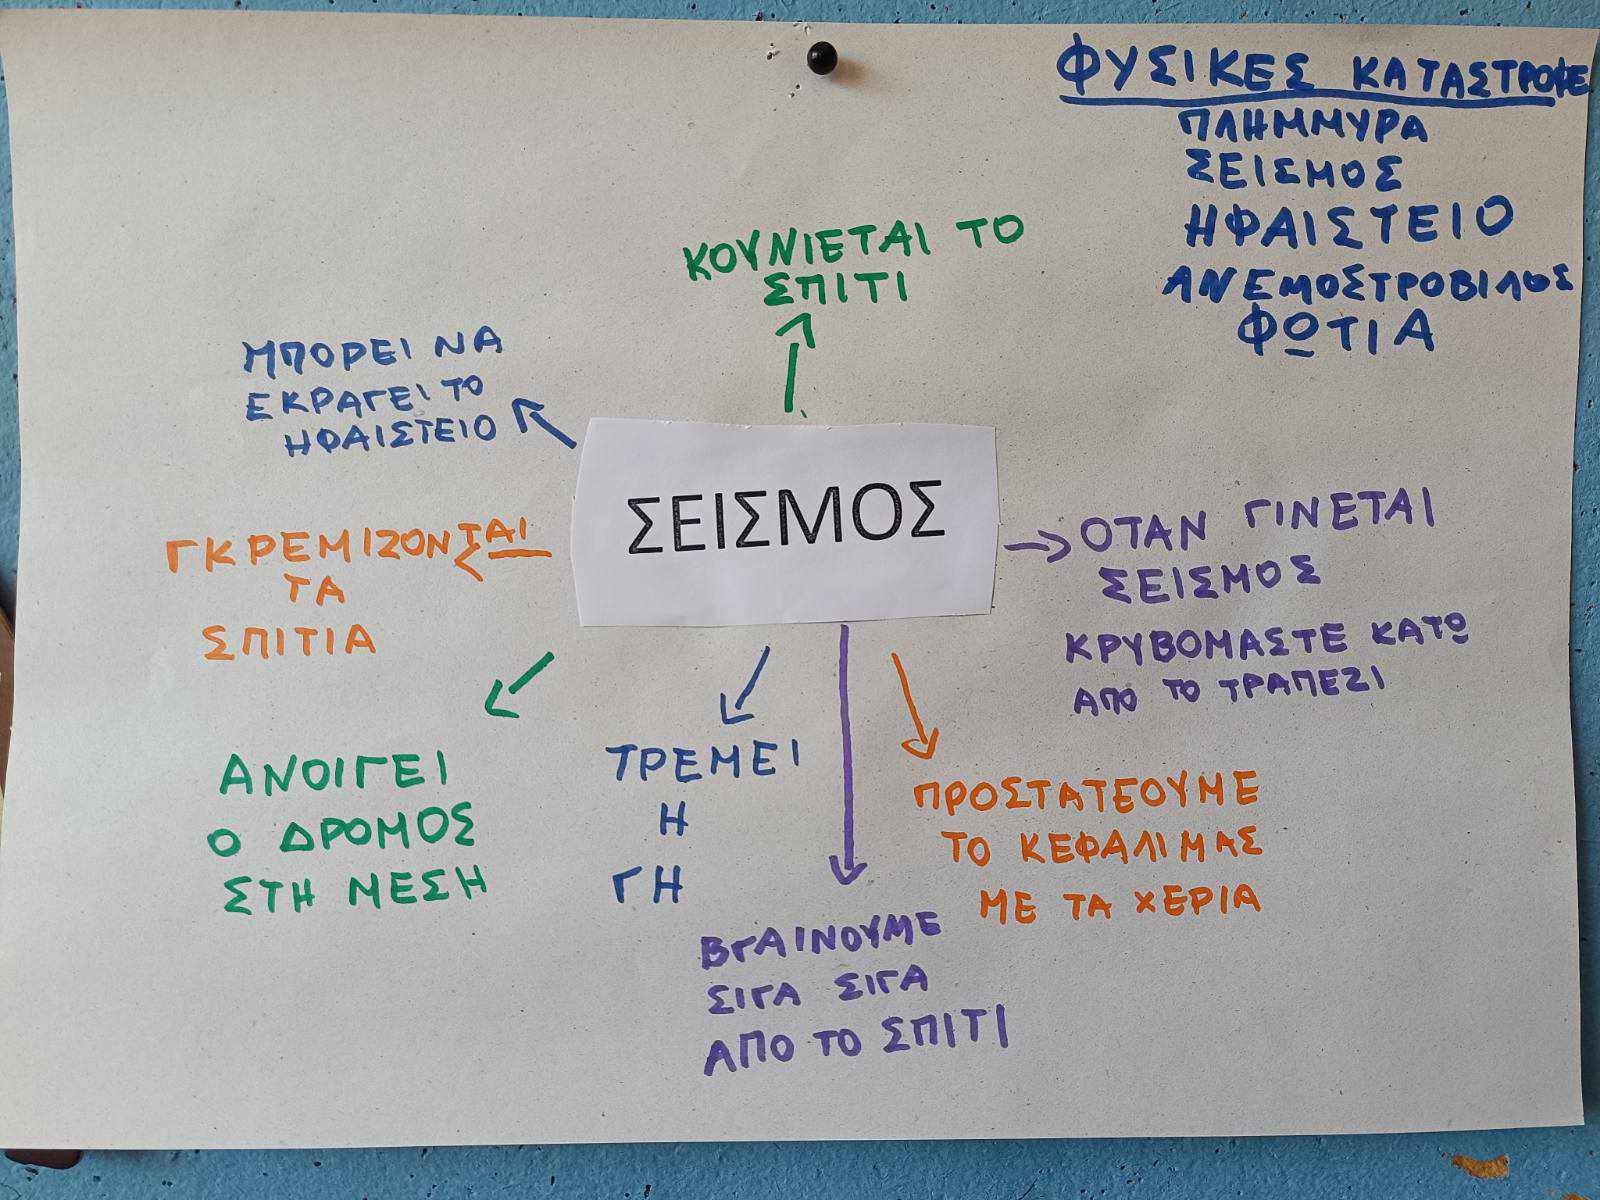 ΦΥΣΙΚΕΣ ΚΑΤΑΣΤΡΟΦΕ
ΠΛΗΜΜΥΡΑ
ΣΕΙΣΜΟΣ
ΗΦΑΙΣΤΕΙΟ
ΑΝΕΜΟΣΤΡΟΒΙΛΟΣ
ΦΩΤΙΑ
ΚΟΥΝΙΕΤΑΙ ΤΟ
ΣΠΙΤΙ
ΜΠΟΡΕΙ ΝΑ
ΕΚΡΑΓΕΙ ΤΟ
ΗΦΑΙΣΤΕΙΟ
ΣΕΙΣΜΟΣ
ΓΚΡΕΜΙΖΟΝΤΑΙ
ΤΑ
ΣΠΙΤΙΑ
ΟΤΑΝ ΓΙΝΕΤΑΙ
ΣΕΙΣΜΟΣ
ΚΡΥΒΟΜΑΣΤΕ ΚΑΤΩ
ΑΠΟ ΤΟ ΤΡΑΠΕΖΙ
ΑΝΟΙΓΕΙ
Ο ΔΡΟΜΟΣ
ΣΤΗ ΜΕΣΗ
ΤΡΕΜΕΙ
Η
ΓΗ
ΠΡΟΣΤΑΤΕΟΥΜΕ
ΤΟ ΚΕΦΑΛΙ ΜΑΣ
ΜΕ ΤΑ ΧΕΡΙΑ
ΒΓΑΙΝΟΥΜΕ
ΣΙΓΑ ΣΙΓΑ
ΑΠΟ ΤΟ ΣΠΙΤΙ